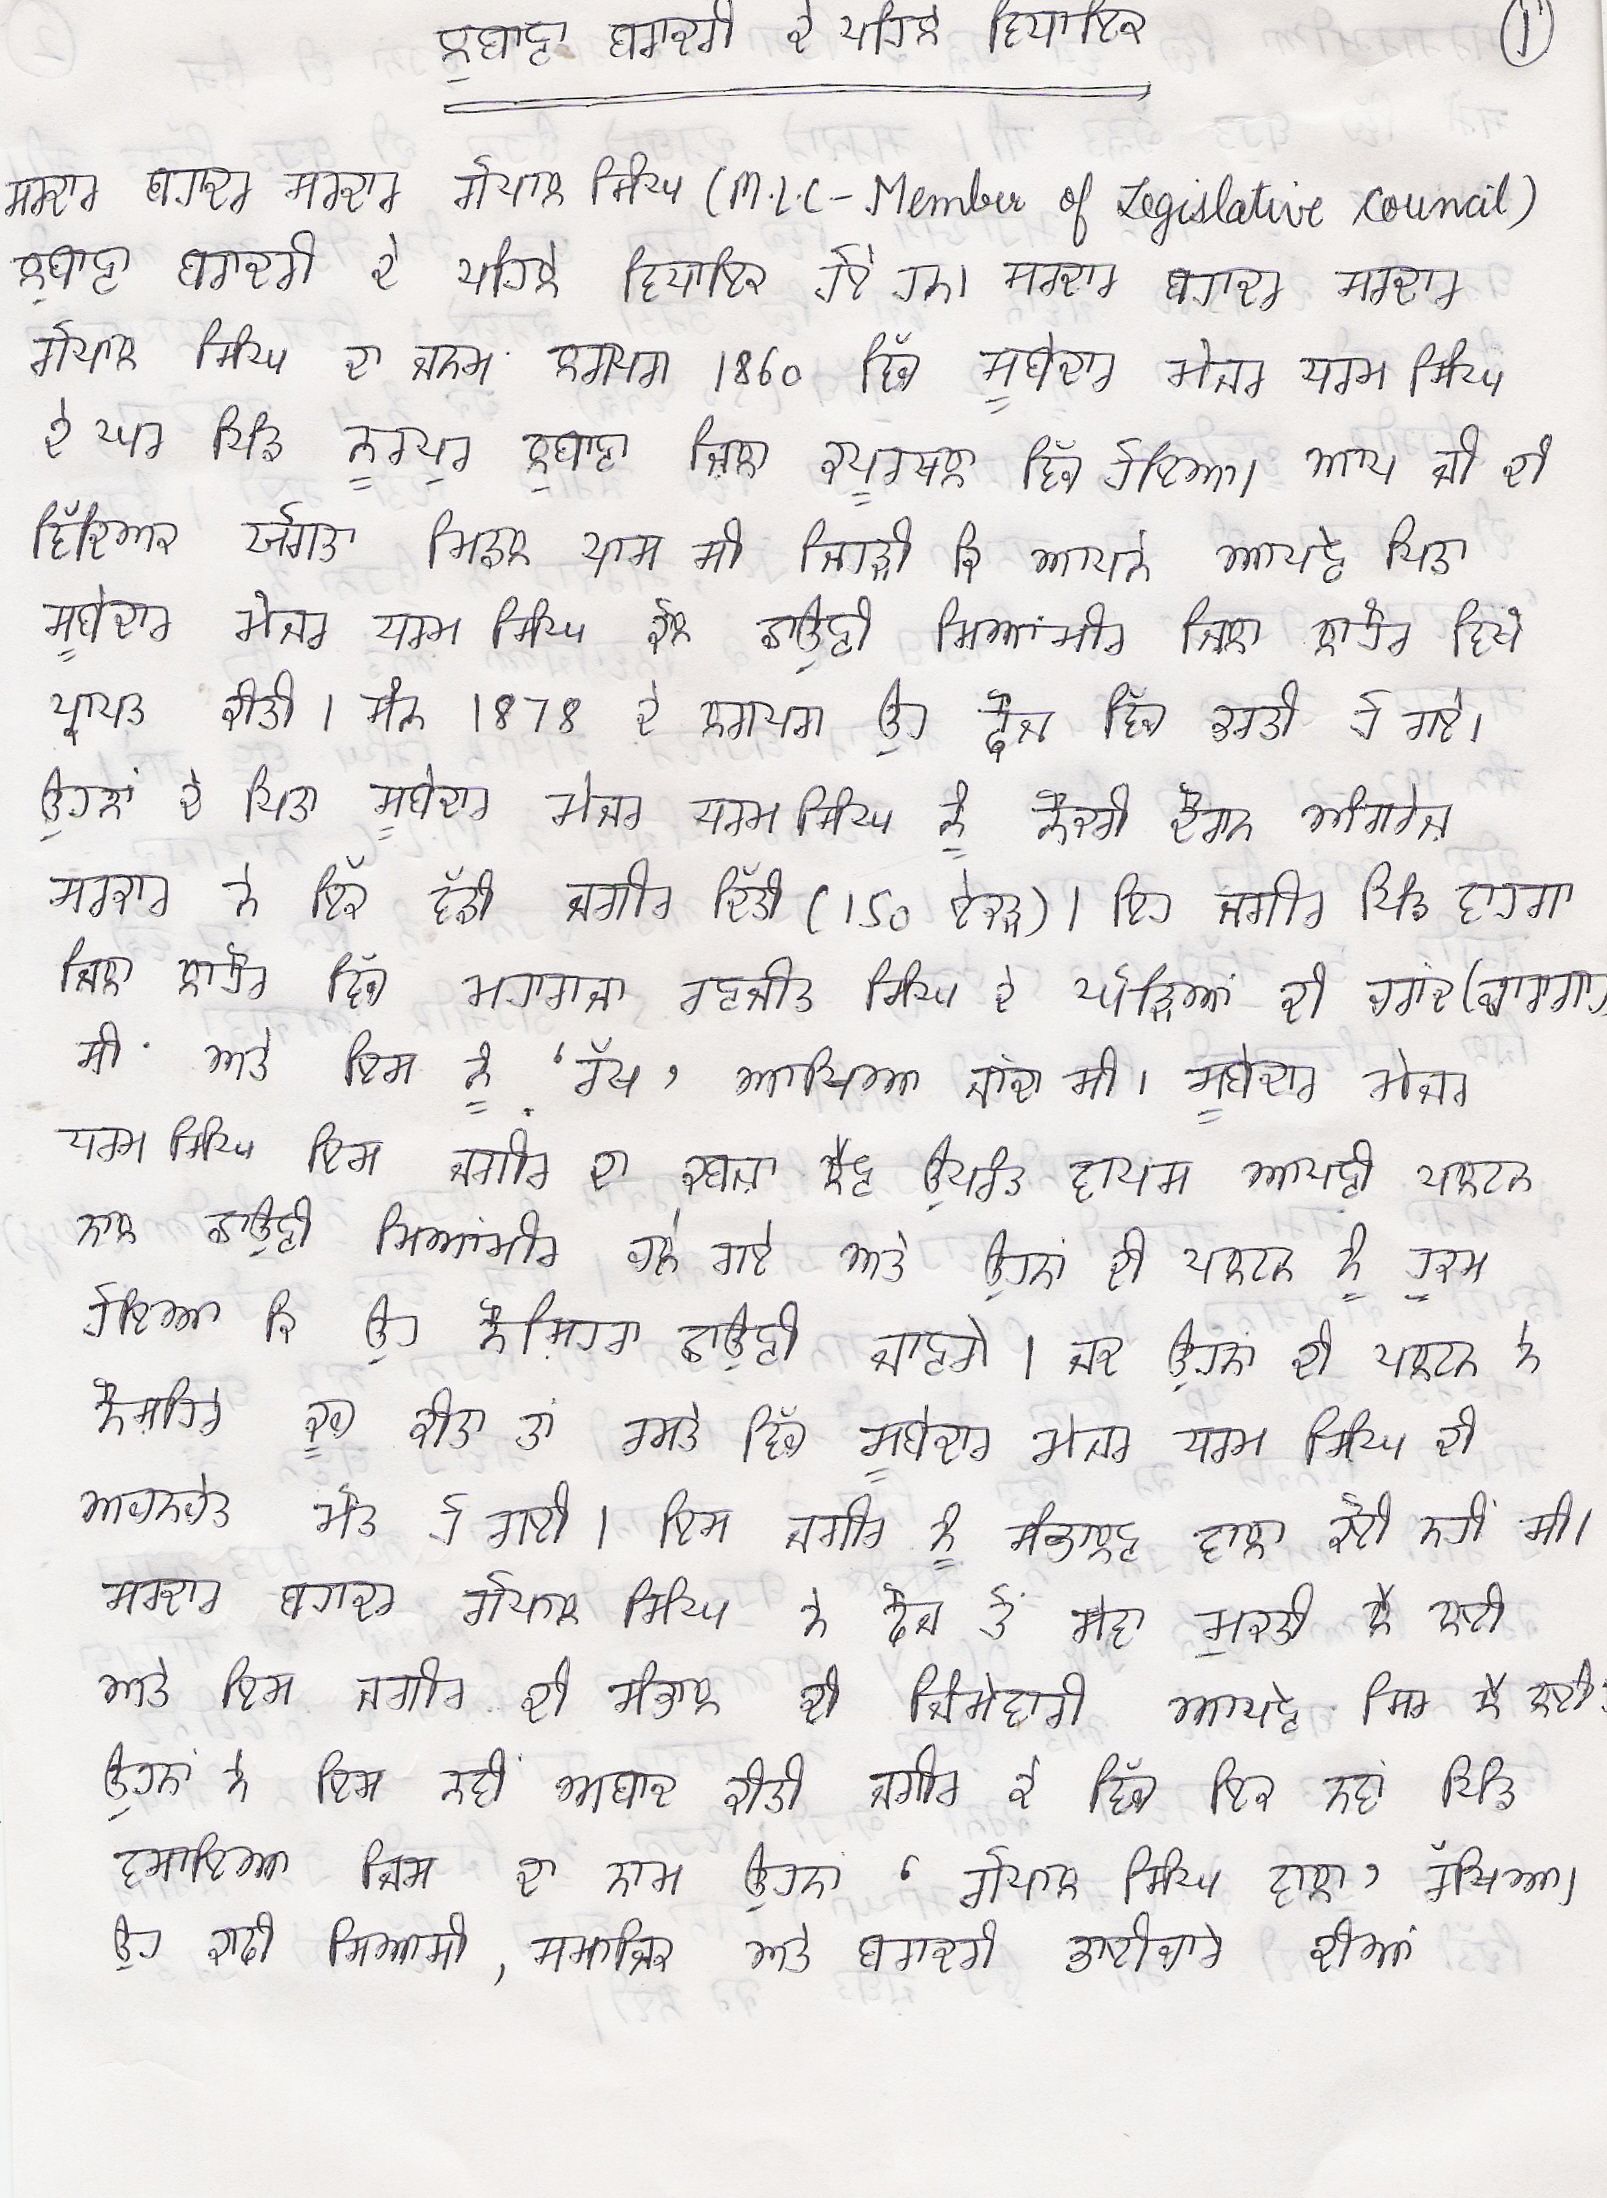 ਲੁਬਾਣਾ ਬਰਾਦਰੀ ਦੇ ਪਹਿਲੇ ਵਿਧਾਇਕ
1
ਸਰਦਾਰ ਬਹਾਦਰ ਸਰਦਾਰ ਗੋਪਾਲ ਸਿੰਘ (M.L.C - Member of Legislative Council)
ਲੁਬਾਣਾ ਬਰਾਦਰੀ ਦੇ ਪਹਿਲੇ ਵਿਧਾਇਕ ਹੋਏ ਹਨ। ਸਰਦਾਰ ਬਹਾਦਰ ਸਰਦਾਰ
ਗੋਪਾਲ ਸਿੰਘ ਦਾ ਜਨਮ ਲਗਪਗ 1860 ਵਿੱਚ ਸੂਬੇਦਾਰ ਮੇਜਰ ਧਰਮ ਸਿੰਘ
ਦੇ ਘਰ ਪਿੰਡ ਨੂਰਪੁਰ ਲੁਬਾਣਾ ਜ਼ਿਲਾ ਕਪੂਰਥਲਾ ਵਿੱਚ ਹੋਇਆ। ਆਪ ਜੀ ਦੀ
ਵਿੱਦਿਅਕ ਯੋਗਤਾ ਮਿਡਲ ਪਾਸ ਸੀ ਜਿਹੜੀ ਕਿ ਆਪਨੇ ਆਪਣੇ ਪਿਤਾ
ਸੂਬੇਦਾਰ ਮੇਜਰ ਧਰਮ ਸਿੰਘ ਕੋਲ ਛਾਉਣੀ ਮਿਆਂਮੀਰ ਜ਼ਿਲਾ ਲਾਹੌਰ ਵਿਖੇ
ਪ੍ਰਾਪਤ ਕੀਤੀ। ਸੰਨ 1878 ਦੇ ਲਗਪਗ ਉਹ ਫੌਜ ਵਿੱਚ ਭਰਤੀ ਹੋ ਗਏ।
ਉਹਨਾਂ ਦੇ ਪਿਤਾ ਸੂਬੇਦਾਰ ਮੇਜਰ ਧਰਮ ਸਿੰਘ ਨੂੰ ਨੌਕਰੀ ਦੌਰਾਨ ਅੰਗਰੇਜ਼
ਸਰਕਾਰ ਨੇ ਇੱਕ ਵੱਡੀ ਜਗੀਰ ਦਿੱਤੀ (150 ਏਕੜ)। ਇਹ ਜਗੀਰ ਪਿੰਡ ਵਾਹਗਾ
ਜ਼ਿਲਾ ਲਾਹੌਰ ਵਿੱਚ ਮਹਾਰਾਜਾ ਰਣਜੀਤ ਸਿੰਘ ਦੇ ਘੋੜਿਆਂ ਦੀ ਚਰਾਂਦ (ਚਾਰਾਗਾਹ
ਸੀ ਅਤੇ ਇਸ ਨੂੰ ‘ਰੱਖ’ ਆਖਿਆ ਜਾਂਦਾ ਸੀ। ਸੂਬੇਦਾਰ ਮੇਜਰ
ਧਰਮ ਸਿੰਘ ਇਸ ਜਗੀਰ ਦਾ ਕਬਜ਼ਾ ਲੈਣ ਉਪਰੰਤ ਵਾਪਸ ਆਪਣੀ ਪਲਟਨ
ਨਾਲ ਛਾਉਣੀ ਮਿਆਂਮੀਰ ਚਲੇ ਗਏ ਅਤੇ ਉਹਨਾਂ ਦੀ ਪਲਟਨ ਨੂੰ ਹੁਕਮ
ਹੋਇਆ ਕਿ ਉਹ ਨੌਸ਼ਿਹਰਾ ਛਾਉਣੀ ਜਾਣਗੇ। ਜਦ ਉਹਨਾਂ ਦੀ ਪਲਟਨ ਨੇ
ਨੌਸ਼ਹਿਰੇ ਕੂਚ ਕੀਤਾ ਤਾਂ ਰਸਤੇ ਵਿੱਚ ਸੂਬੇਦਾਰ ਮੇਜਰ ਧਰਮ ਸਿੰਘ ਦੀ
ਅਚਨਚੇਤ ਮੌਤ ਹੋ ਗਈ। ਇਸ ਜਗੀਰ ਨੂੰ ਸੰਭਾਲਣ ਵਾਲਾ ਕੋਈ ਨਹੀਂ ਸੀ।
ਸਰਦਾਰ ਬਹਾਦਰ ਗੋਪਾਲ ਸਿੰਘ ਨੇ ਫੌਜ ਤੋਂ ਸੇਵਾ ਮੁਕਤੀ ਲੈ ਲਈ
ਅਤੇ ਇਸ ਜਗੀਰ ਦੀ ਸੰਭਾਲ ਦੀ ਜਿੰਮੇਵਾਰੀ ਆਪਣੇ ਸਿਰ ਲੈ ਲਈ।
ਉਹਨਾਂ ਨੇ ਇਸ ਨਵੀਂ ਅਬਾਦ ਕੀਤੀ ਜਗੀਰ ਦੇ ਵਿੱਚ ਇਕ ਨਵਾਂ ਪਿੰਡ
ਵਸਾਇਆ ਜਿਸ ਦਾ ਨਾਮ ਉਹਨਾਂ ‘ਗੋਪਾਲ ਸਿੰਘ ਵਾਲਾ’ ਰੱਖਿਆ।
ਉਹ ਕਾਫੀ ਸਿਆਸੀ, ਸਮਾਜਿਕ ਅਤੇ ਬਰਾਦਰੀ ਭਾਈਚਾਰੇ ਦੀਆਂ